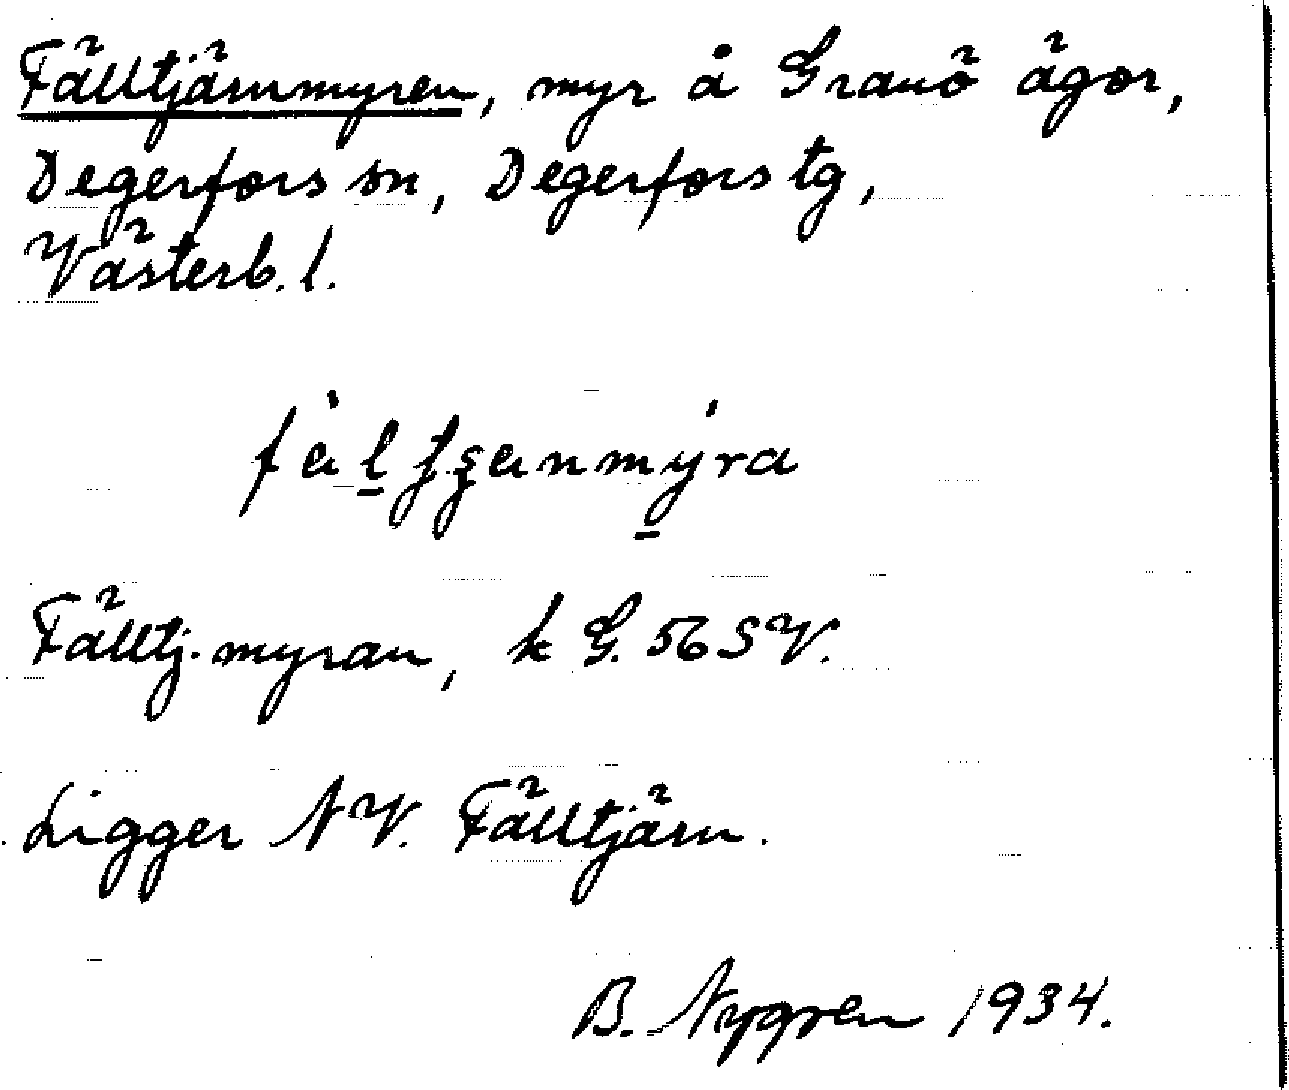 Fälltjärnmyren, myr å Granö ägor,
Degerfors sn, Degerfors tg,
Västerb. l.
Fälltj. myran, k G. 56 SV.
Ligger NV. Fälltjärn.
B. Nygren 1934.